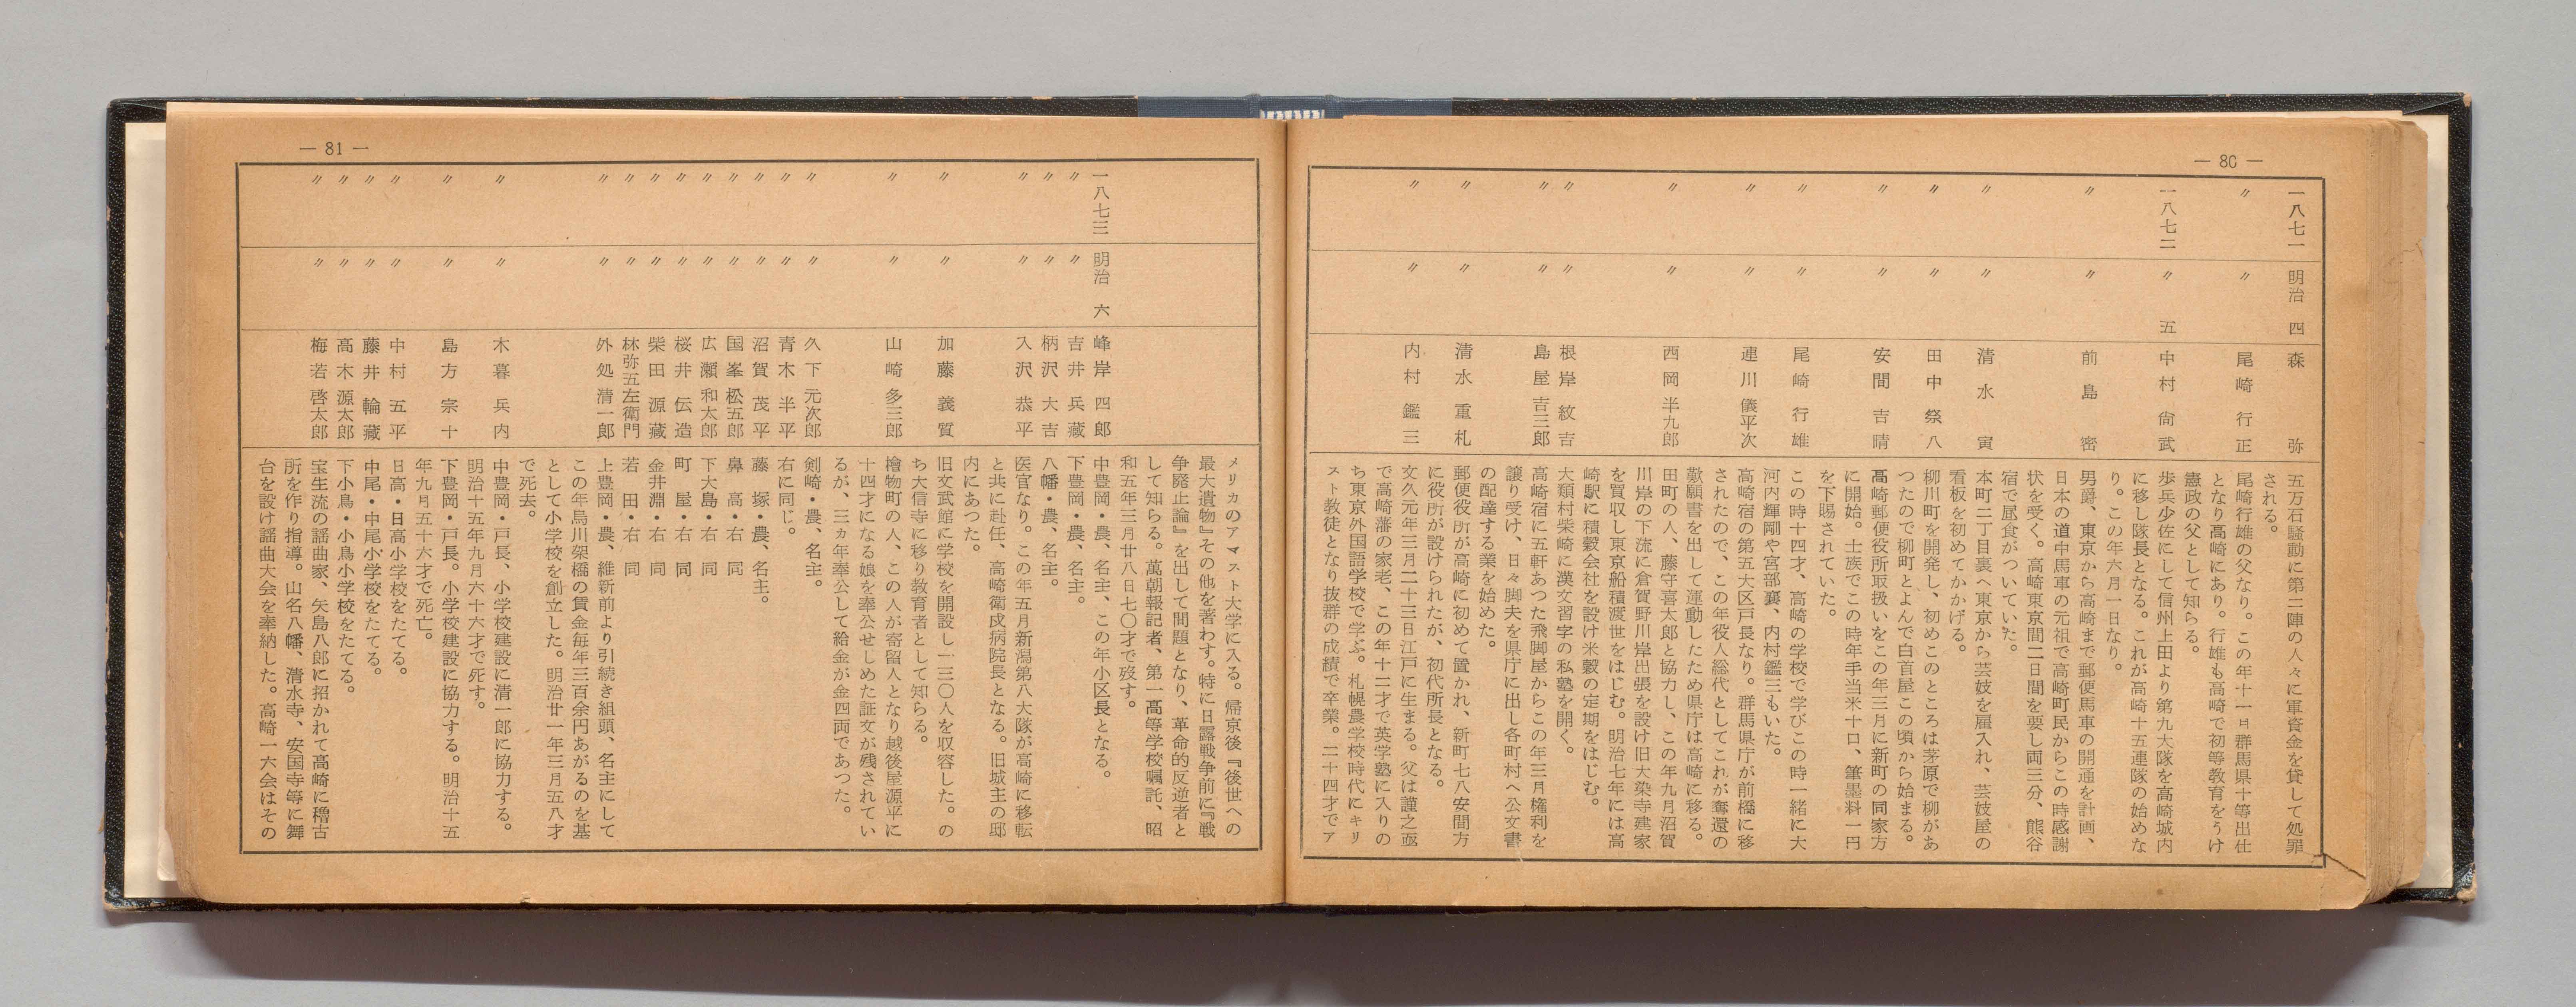 — 80 —
一八七一 明治 四 森 弥 五万石騒動に第二陣の人々に軍資金を貸して処罪
される。
〃 〃 尾崎行正 尾崎行雄の父なり。この年十一月群馬県十等出仕
となり高崎にあり。行雄も高崎で初等教育をうけ
憲政の父として知らる。
一八七二 〃 五 中村尙武 歩兵少佐にして信州上田より第九大隊を高崎城内
に移し隊長となる。これが高崎十五連隊の始めな
り。この年六月一日なり。
〃 〃 前島密 男爵、東京から高崎まで郵便馬車の開通を計画、
日本の道中馬車の元祖で高崎町民からこの時感謝
状を受く。高崎東京間二日間を要し両三分、熊谷
宿で昼食がついていた。
〃 〃 清水寅 本町二丁目裏へ東京から芸妓を雇入れ、芸妓屋の
看板を初めてかかげる。
〃 〃 田中祭八 柳川町を開発し、初めこのところは茅原で柳があ
つたので柳町とよんで白首屋この頃から始まる。
〃 〃 安間吉晴 高崎郵便役所取扱いをこの年三月に新町の同家方
に開始。士族でこの時年手当米十口、筆墨料一円
を下賜されていた。
〃 〃 尾崎行雄 この時十四才、高崎の学校で学びこの時一緒に大
河内輝剛や宮部襄、内村鑑三もいた。
〃 〃 連川儀平次 高崎宿の第五大区戸長なり。群馬県庁が前橋に移
されたので、この年役人総代としてこれが奪還の
歎願書を出して運動したため県庁は高崎に移る。
〃 〃 西岡半九郎 田町の人、藤守喜太郎と協力し、この年九月沼賀
川岸の下流に倉賀野川岸出張を設け旧大染寺建家
を買収し東京船積渡世をはじむ。明治七年には高
崎駅に積穀会社を設け米穀の定期をはじむ。
〃 〃 根岸紋吉 大類村柴崎に漢文習字の私塾を開く。
〃 〃 島屋吉三郎 高崎宿に五軒あつた飛脚屋からこの年三月権利を
譲り受け、日々脚夫を県庁に出し各町村へ公文書
の配達する業を始めた。
〃 〃 清水重札 郵便役所が高崎に初めて置かれ、新町七八安間方
に役所が設けられたが、初代所長となる。
〃 〃 内村鑑三 文久元年三月二十三日江戸に生まる。父は謹之亟
で高崎藩の家老、この年十二才で英学塾に入りの
ち東京外国語学校で学ぶ。札幌農学校時代にキリ
スト教徒となり抜群の成績で卒業。二十四才でア
— 81 —
メリカのアマスト大学に入る。帰京後『後世への
最大遺物』その他を著わす。特に日露戦争前に『戦
争廃止論』を出して問題となり、革命的反逆者と
して知らる。萬朝報記者、第一高等学校嘱託、昭
和五年三月廿八日七〇才で歿す。
一八七三 明治 六 峰岸四郎 中豊岡・農、名主、この年小区長となる。
〃 〃 吉井兵藏 下豊岡・農、名主。
〃 〃 柄沢大吉 八幡・農、名主。
〃 〃 入沢恭平 医官なり。この年五月新潟第八大隊が高崎に移転
と共に赴任、高崎衛戍病院長となる。旧城主の邸
内にあつた。
〃 〃 加藤義質 旧文武館に学校を開設し一三〇人を収容した。の
ち大信寺に移り教育者として知らる。
〃 〃 山崎多三郎 檜物町の人、この人が寄留人となり越後屋源平に
十四才になる娘を奉公せしめた証文が残されてい
るが、三ヵ年奉公して給金が金四両であつた。
〃 〃 久下元次郎 剣崎・農、名主。
〃 〃 青木半平 右に同じ。
〃 〃 沼賀茂平 藤塚・農、名主。
〃 〃 国峯松五郎 鼻高・右同
〃 〃 広瀬和太郎 下大島・右同
〃 〃 桜井伝造 町屋・右同
〃 〃 柴田源藏 金井淵・右同
〃 〃 林弥五左衛門 若田・右同
〃 〃 外処清一郎 上豊岡・農、維新前より引続き組頭、名主にして
この年烏川架橋の賃金毎年三百余円あがるのを基
として小学校を創立した。明治廿一年三月五八才
で死去。
〃 〃 木暮兵内 中豊岡・戸長、小学校建設に清一郎に協力する。
明治十五年九月六十六才で死す。
〃 〃 島方宗十 下豊岡・戸長。小学校建設に協力する。明治十五
年九月五十六才で死亡。
〃 〃 中村五平 日高・日高小学校をたてる。
〃 〃 藤井輪藏 中尾・中尾小学校をたてる。
〃 〃 高木源太郎 下小鳥・小鳥小学校をたてる。
〃 〃 梅若啓太郎 宝生流の謡曲家、矢島八郎に招かれて高崎に稽古
所を作り指導。山名八幡、清水寺、安国寺等に舞
台を設け謡曲大会を奉納した。高崎一六会はその